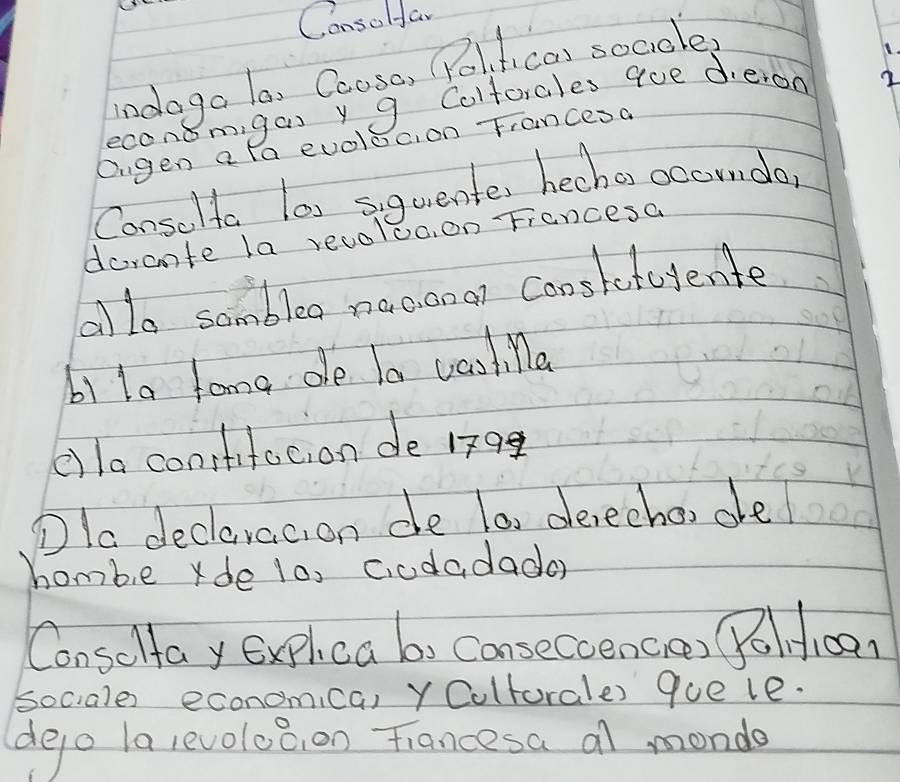 Consoltar
indaga las Caosas Politicas sociales
economigas y g Coltorales que dieron
Origen a la evolocion Francesa
Consolta los siguentes hechos ocorridos
dorante la revolocion Francesa
a) la samblea nacional Constotoyente
b) la toma de la vastilla
c) la constitocion de 1791
D la declaracion de los derechos del
hombre y de los ciodadados
Consolta y Explica los Conseccencias Politicas
sociales economicas y Coltorales que le.
dejo la revolocion Francesa al mondo
1.
2